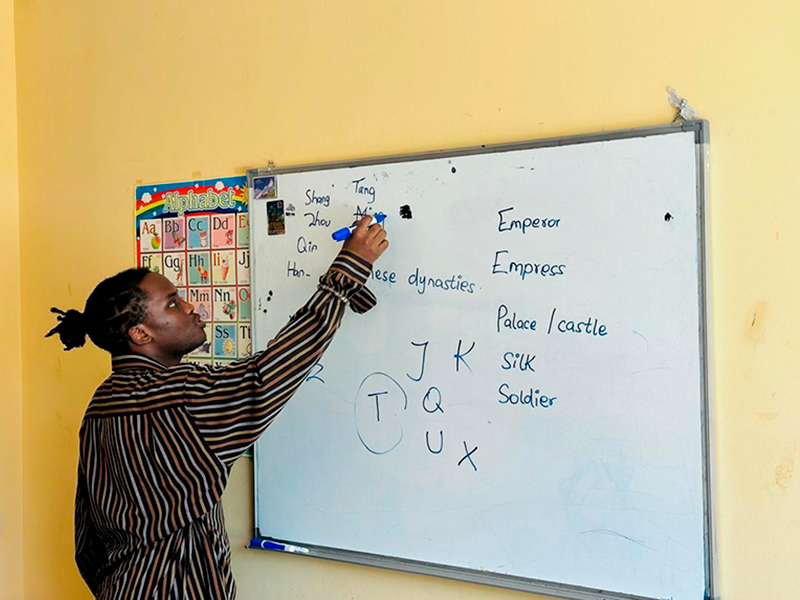 Alphabet
Aa Bb Cc Dd
Ff Gg Hh Ii Jj
Mm Nn
Ss Tt
Shang
Zhou
Qin
Han-
Tang
dynasties.
J K
T Q
U X
Emperor
Empress
Palace / castle
Silk
Soldier